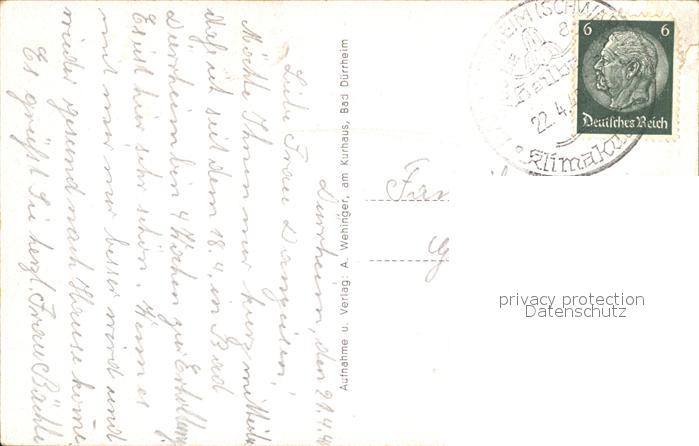 Dürrheim, den 21.4.4
Liebe Frau
Möchte Ihnen nur kurz mitteilen
daß ich seit dem 18.4. in Bad
Dürrheim bin 4 Wochen zur Erholung
Es ist hier sehr schön. Wenn es
mit mir nur besser wird und
wieder gesund nach Hause komme
Es grüßt Sie herzl. Frau Bächle
Aufnahme u. Verlag: A. Wehinger, am Kurhaus, Bad Dürrheim
HEIM (SCHWA
22.4.
Klimaku
6 6
Deutsches Reich
Fam
privacy protection
Datenschutz